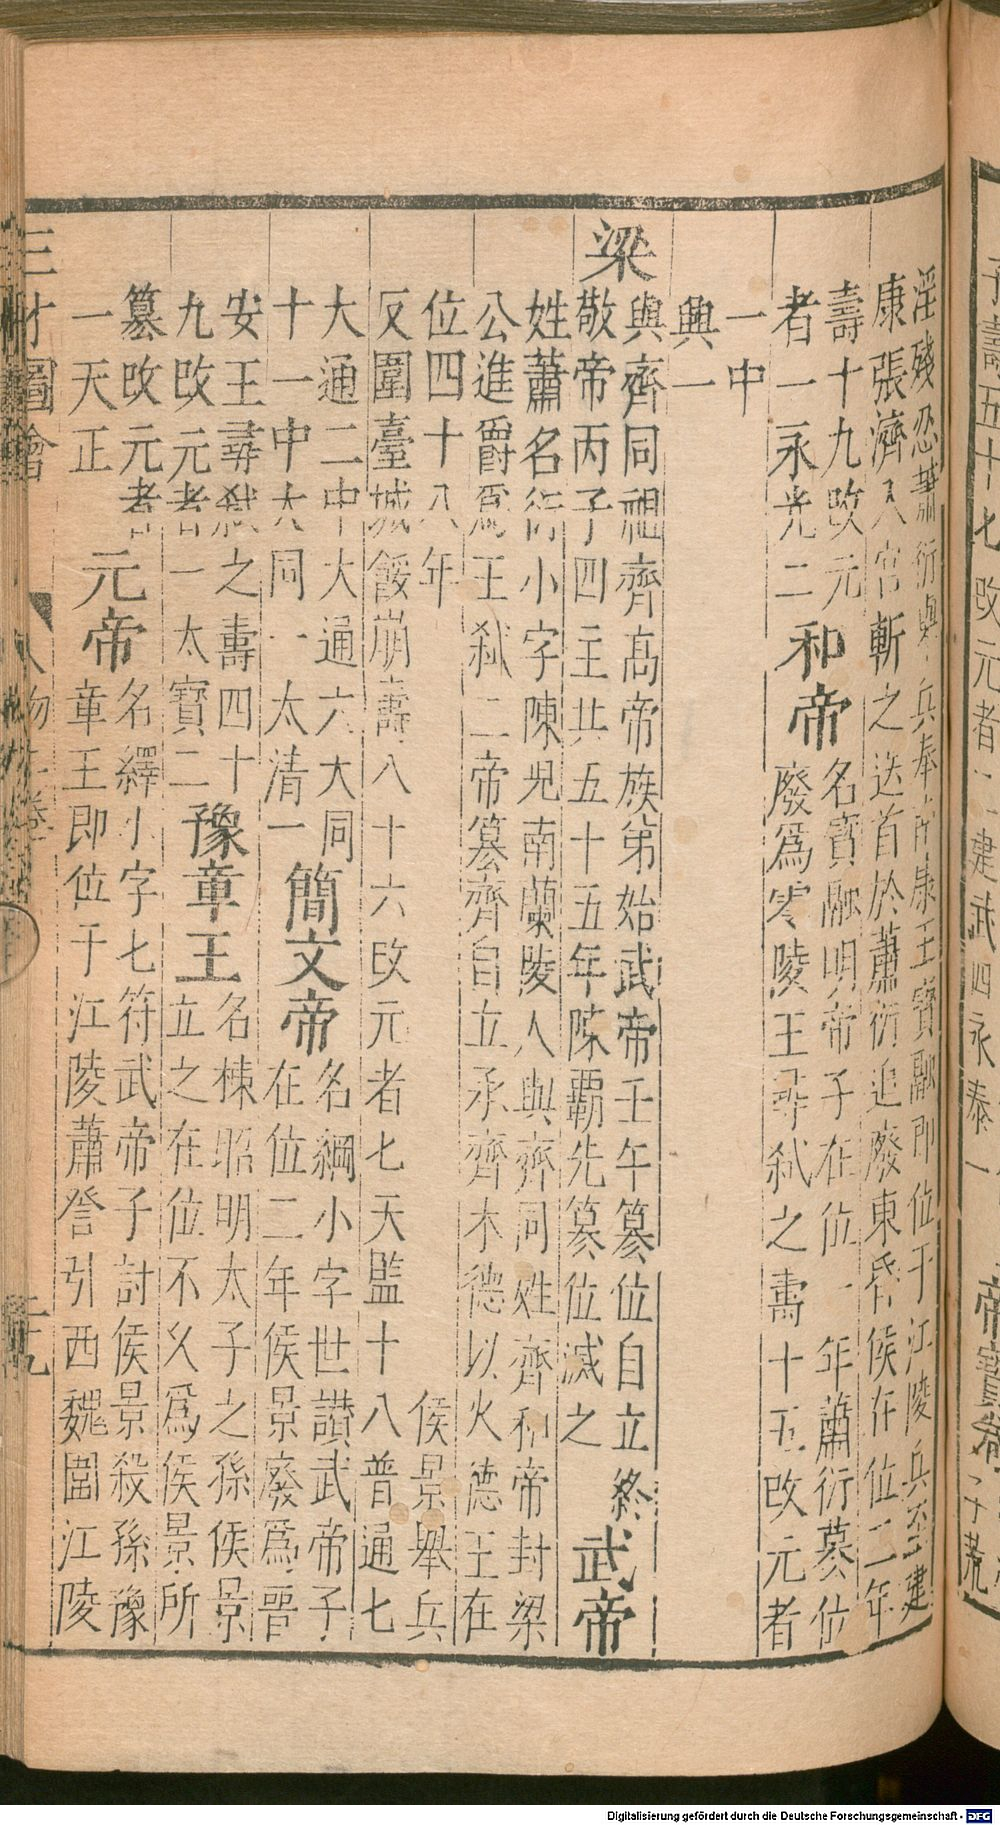 淫殘忍蕭衍與兵奉南康王寳融即位于江陵兵至建
康張濟入宮斬之送首於蕭衍追廢東昏侯在位二年
壽十九改元
者一永光二
和帝
名寳融明帝子在位一年蕭衍篡位
廢爲零陵王尋弒之壽十五改元者
一中
興一
梁
與齊同祖齊高帝族第始武帝壬午篡位自立終
敬帝丙子四主共五十五年陳霸先篡位滅之
武帝
姓蕭名衍小字陳兒南蘭陵人與齊同姓齊和帝封梁
公進爵爲王弒二帝篡齊自立承齊木德以火德王在
位四十八年 侯景舉兵
反圍臺城餒崩壽八十六改元者七天監十八普通七
大通二中大通六大同
十一中大同一太清一
簡文帝
名綱小字世讃武帝子
在位二年侯景廢爲晉
安王尋弒之壽四十
九改元者一太寳二
豫章王
名棟昭明太子之孫侯景
立之在位不久爲侯景所
篡改元者
一天正
元帝
名繹小字七符武帝子討侯景殺孫豫
章王即位于江陵蕭詧引西魏圍江陵
三才圖會
人物
Digitalisierung gefördert durch die Deutsche Forschungsgemeinschaft - DFG